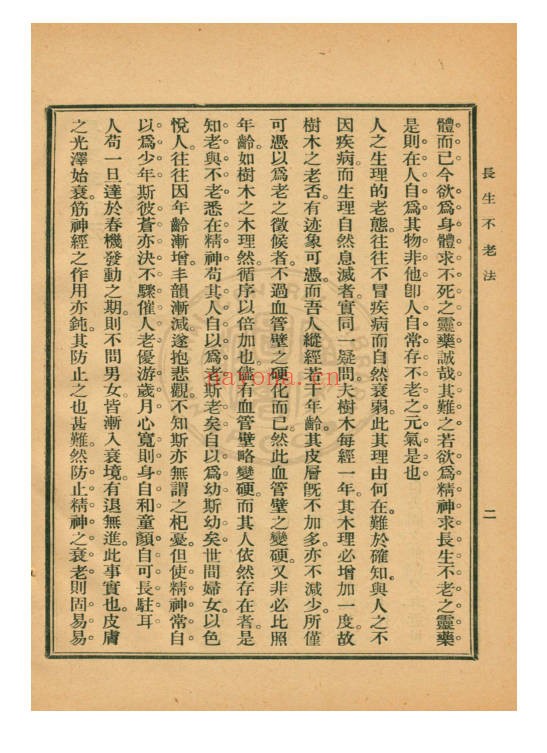 長生不老法
二
體而已今欲爲身體求不死之靈藥誠哉其難之若欲爲精神求長生不老之靈藥
是則在人自爲其物非他卽人自常存不老之元氣是也
人之生理的老態往往不冒疾病而自然衰弱此其理由何在難於確知與人之不
因疾病而生理自然息滅者實同一疑問夫樹木每經一年其木理必增加一度故
樹木之老否有迹象可憑而吾人縱經若干年齡其皮層旣不加多亦不減少所僅
可憑以爲老之徵候者不過血管壁之硬化而已然此血管壁之變硬又非必比照
年齡如樹木之木理然循序以倍加也儘有血管壁略變硬而其人依然存在者是
知老與不老悉在精神苟其人自以爲老斯老矣自以爲幼斯幼矣世間婦女以色
悅人往往因年齡漸增丰韻漸減遂抱悲觀不知斯亦無謂之杞憂但使精神常自
以爲少年斯彼蒼亦決不驟催人老優游歲月心寬則身自和童顏自可長駐耳
人苟一旦達於春機發動之期則不問男女皆漸入衰境有退無進此事實也皮膚
之光澤始衰筋神經之作用亦鈍其防止之也甚難然防止精神之衰老則固易易
nayona.cn